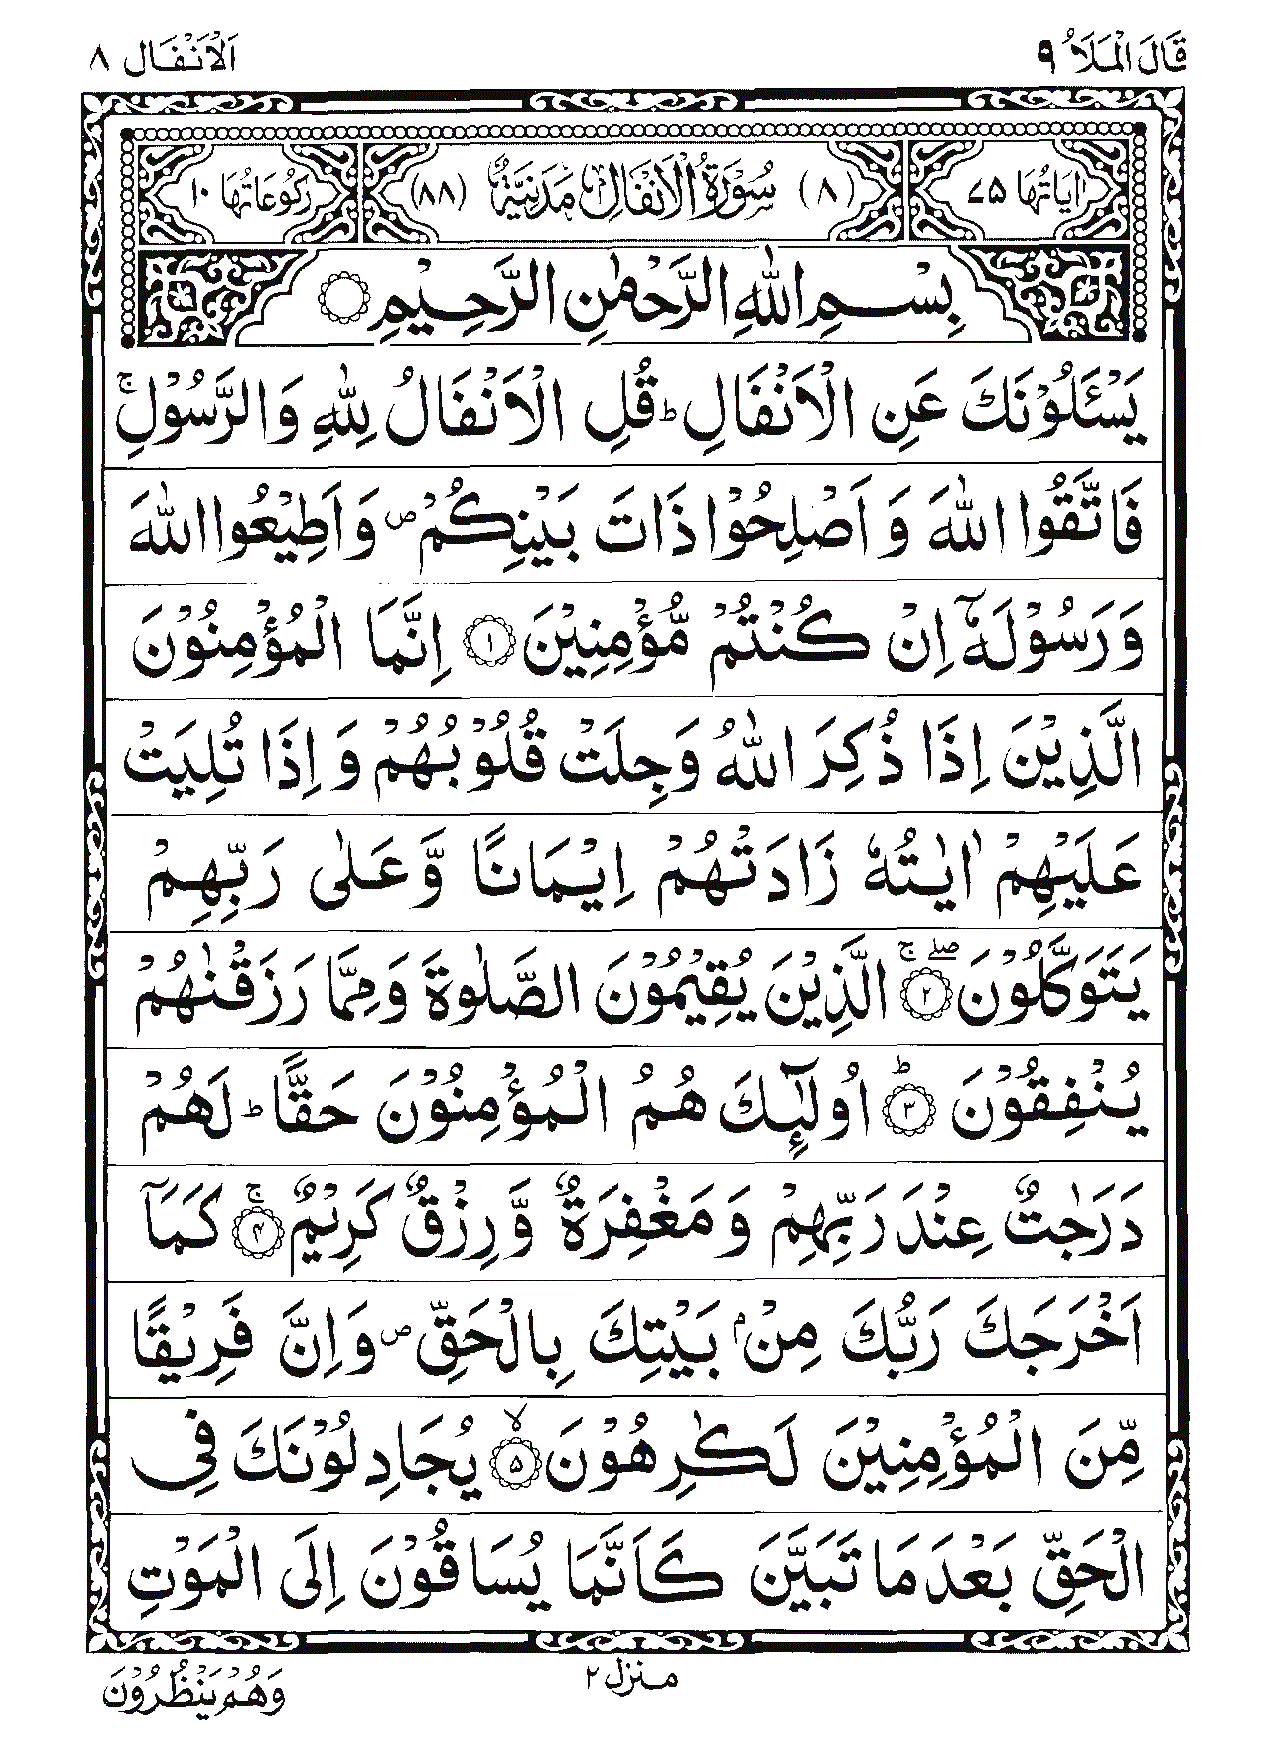 قَالَ الْمَلَاُ ۹
اَلْاَنْفَال ۸
اٰيَاتُهَا ۷۵
(۸) سُوْرَةُ الْاَنْفَالِ مَدَنِيَّةٌ (۸۸)
رُكُوْعَاتُهَا ۱۰
بِسْمِ اللّٰهِ الرَّحْمٰنِ الرَّحِيْمِ ۝
يَسْـَٔلُوْنَكَ عَنِ الْاَنْفَالِ ؕ قُلِ الْاَنْفَالُ لِلّٰهِ وَالرَّسُوْلِ ۚ
فَاتَّقُوا اللّٰهَ وَ اَصْلِحُوْا ذَاتَ بَيْنِكُمْ ۪ وَاَطِيْعُوا اللّٰهَ
وَرَسُوْلَهٗۤ اِنْ كُنْتُمْ مُّؤْمِنِيْنَ ۝۱ اِنَّمَا الْمُؤْمِنُوْنَ
الَّذِيْنَ اِذَا ذُكِرَ اللّٰهُ وَجِلَتْ قُلُوْبُهُمْ وَ اِذَا تُلِيَتْ
عَلَيْهِمْ اٰيٰتُهٗ زَادَتْهُمْ اِيْمَانًا وَّعَلٰى رَبِّهِمْ
يَتَوَكَّلُوْنَ ۝۲ ۖۚ الَّذِيْنَ يُقِيْمُوْنَ الصَّلٰوةَ وَمِمَّا رَزَقْنٰهُمْ
يُنْفِقُوْنَ ۝۳ ؕ اُولٰٓئِكَ هُمُ الْمُؤْمِنُوْنَ حَقًّا ؕ لَهُمْ
دَرَجٰتٌ عِنْدَ رَبِّهِمْ وَمَغْفِرَةٌ وَّرِزْقٌ كَرِيْمٌ ۝۴ ۚ كَمَاۤ
اَخْرَجَكَ رَبُّكَ مِنْۢ بَيْتِكَ بِالْحَقِّ ۪ وَاِنَّ فَرِيْقًا
مِّنَ الْمُؤْمِنِيْنَ لَكٰرِهُوْنَ ۝۵ ۙ يُجَادِلُوْنَكَ فِى
الْحَقِّ بَعْدَ مَا تَبَيَّنَ كَاَنَّمَا يُسَاقُوْنَ اِلَى الْمَوْتِ
منزل ۲
وَهُمْ يَنْظُرُوْنَ